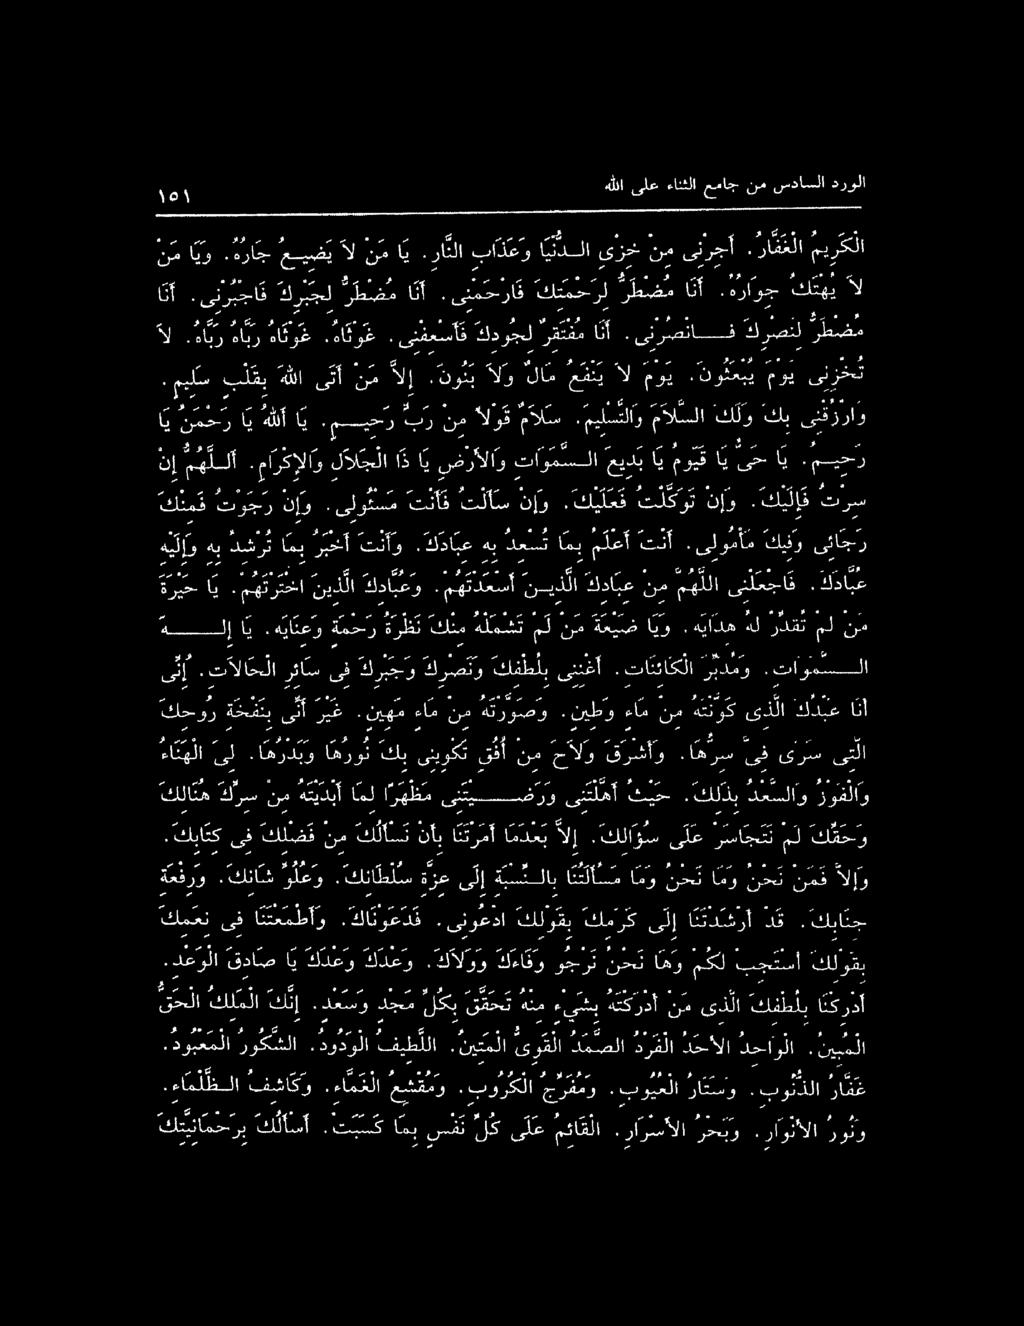 الورد السادس من جامع الثناء على الله ١٥١
الْكَرِيمُ الْغَفَّارُ. أَجِرْنِى مِنْ خِزْىِ الـدُّنْيَا وَعَذَابِ النَّارِ. يَا مَنْ لاَ يَضِيـعُ جَارُهُ. وَيَا مَنْ
لاَ يُهْتَكُ جِوَارُهُ. أَنَا مُضْطَرٌّ لِرَحْمَتِكَ فَارْحَمْنِى. أَنَا مُضْطَرٌّ لِجَبْرِكَ فَاجْبُرْنِى. أَنَا
مُضْطَرٌّ لِنَصْرِكَ فَـــانْصُرْنِى. أَنَا مُفْتَقِرٌ لِجُودِكَ فَأَسْعِفْنِى. غَوْثَاهُ. غَوْثَاهُ رَبَّاهُ رَبَّاهُ. لاَ
تُخْزِنِى يَوْمَ يُبْعَثُونَ. يَوْمَ لاَ يَنْفَعُ مَالٌ وَلاَ بَنُونَ. إِلاَّ مَنْ أَتَى اللهَ بِقَلْبٍ سَلِيمٍ.
وَارْزُقْنِى بِكَ وَلَكَ السَّلاَمَ وَالتَّسْلِيمَ. سَلاَمٌ قَوْلاً مِنْ رَبٍّ رَحِيـــمٍ. يَا اَللهُ يَا رَحْمَنُ يَا
رَحِيـمُ. يَا حَىُّ يَا قَيُّومُ يَا بَدِيعَ الـسَّمَوَاتِ وَالأَرْضِ يَا ذَا الْجَلاَلِ وَالإِكْرَامِ. اَلـلَّهُمَّ إِنْ
سِرْتُ فَإِلَيْكَ. وَإِنْ تَوَكَّلْتُ فَعَلَيْكَ. وَإِنْ سَأَلْتُ فَأَنْتَ مَسْئُولِى. وَإِنْ رَجَوْتُ فَمِنْكَ
رَجَائِى وَفِيكَ مَأْمُولِى. أَنْتَ أَعْلَمُ بِمَا تُسْعِدُ بِهِ عِبَادَكَ. وَأَنْتَ أَخْبَرُ بِمَا تُرْشِدُ بِهِ وَإِلَيْهِ
عُبَّادَكَ. فَاجْعَلْنِى اللَّهُمَّ مِنْ عِبَادِكَ الَّذِيـنَ أَسْعَدْتَهُمْ. وَعُبَّادِكَ الَّذِينَ اخْتَرْتَهُمْ. يَا حَيْرَةَ
مَنْ لَمْ تُقَدِّرْ لَهُ هِدَايَه. وَيَا ضَيْعَةَ مَنْ لَمْ تَشْمَلْهُ مِنْكَ نَظْرَةُ رَحْمَةٍ وَعِنَايَه. يَا إِلَـــهَ
الــــسَّمَوَاتِ. وَمُدَبِّرَ الْكَائِنَاتِ. أَغِثْنِى بِلُطْفِكَ وَنَصْرِكَ وَجَبْرِكَ فِى سَائِرِ الْحَالاَتِ. إِنِّى
أَنَا عَبْدُكَ الَّذِى كَوَّنْتَهُ مِنْ مَاءٍ وَطِينٍ. وَصَوَّرْتَهُ مِنْ مَاءٍ مَهِينٍ. غَيْرَ أَنِّى بِنَفْخَةِ رُوحِكَ
الَّتِى سَرَى فِىَّ سِرُّهَا. وَأَشْرَقَ وَلاَحَ مِنْ أُفُقِ تَكْوِينِى بِكَ نُورُهَا وَبَدْرُهَا. لِىَ الْهَنَاءُ
وَالْفَوْزُ وَالسَّعْدُ بِذَلِكَ. حَيْثُ أَهَّلْتَنِى وَرَضِـــيتَنِى مَظْهَرًا لِمَا أَبْدَيْتَهُ مِنْ سِرِّكَ هُنَالِكَ
وَحَقِّكَ لَمْ نَتَجَاسَرْ عَلَى سُؤَالِكَ. إِلاَّ بَعْدَمَا أَمَرْتَنَا بِأَنْ نَسْأَلَكَ مِنْ فَضْلِكَ فِى كِتَابِكَ.
وَإِلاَّ فَمَنْ نَحْنُ وَمَا نَحْنُ وَمَا مَسْأَلَتُنَا بِالـنِّسْبَةِ إِلَى عِزَّةِ سُلْطَانِكَ. وَعُلُوِّ شَانِكَ. وَرِفْعَةِ
جَنَابِكَ. قَدْ أَرْشَدْتَنَا إِلَى كَرَمِكَ بِقَوْلِكَ ادْعُونِى. فَدَعَوْنَاكَ. وَأَطْمَعْتَنَا فِى نِعَمِكَ
بِقَوْلِكَ أَسْتَجِبْ لَكُمْ وَهَا نَحْنُ نَرْجُو وَفَاءَكَ وَوَلاَكَ. وَعْدَكَ وَعْدَكَ يَا صَادِقَ الْوَعْدِ.
أَدْرِكْنَا بِلُطْفِكَ الَّذِى مَنْ أَدْرَكْتَهُ بِشَيْءٍ مِنْهُ تَحَقَّقَ بِكُلِّ مَجْدٍ وَسَعْدٍ. إِنَّكَ الْمَلِكُ الْحَقُّ
الْمُبِينُ. الْوَاحِدُ الأَحَدُ الْفَرْدُ الصَّمَدُ الْقَوِىُّ الْمَتِينُ. اللَّطِيفُ الْوَدُودُ. الشَّكُورُ الْمَعْبُودُ.
غَفَّارُ الذُّنُوبِ. وَسَتَّارُ الْعُيُوبِ. وَمُفَرِّجُ الْكُرُوبِ. وَمُقْشِعُ الْغَمَّاءِ. وَكَاشِفُ الـظَّلْمَاءِ.
وَنُورُ الأَنْوَارِ. وَبَحْرُ الأَسْرَارِ. الْقَائِمُ عَلَى كُلِّ نَفْسٍ بِمَا كَسَبَتْ. أَسْأَلُكَ بِرَحْمَانِيَّتِكَ